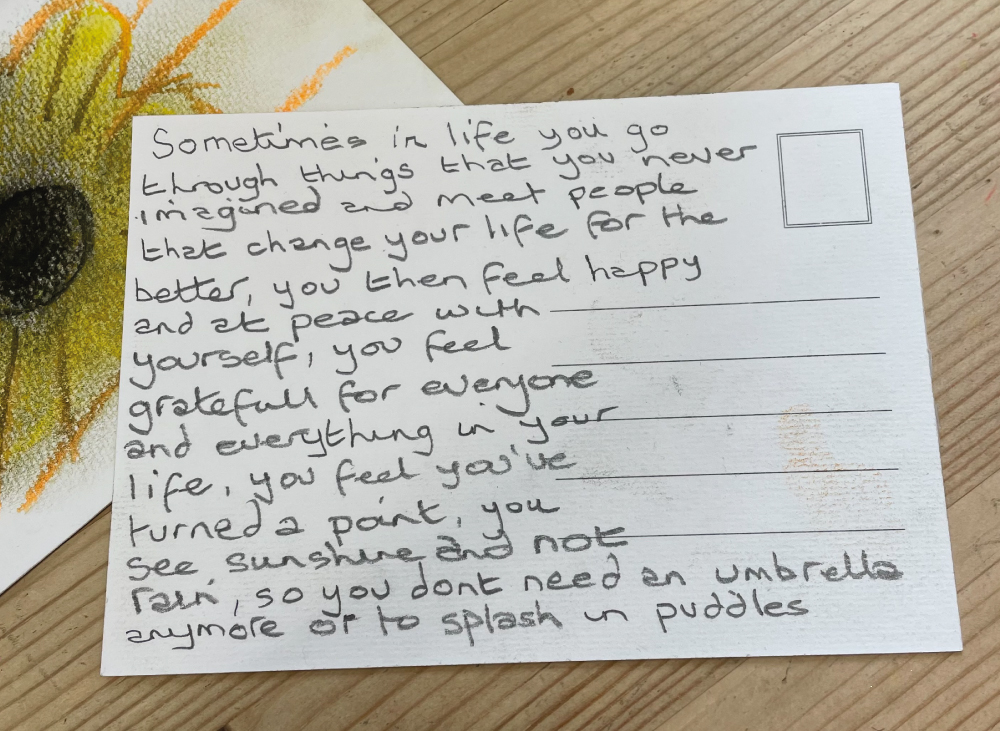 Sometimes in life you go
through things that you never
imagined and meet people
that change your life for the
better, you then feel happy
and at peace with
yourself, you feel
gratefull for everyone
and everything in your
life, you feel you've
turned a point, you
see sunshine and not
rain, so you dont need an umbrella
anymore or to splash in puddles